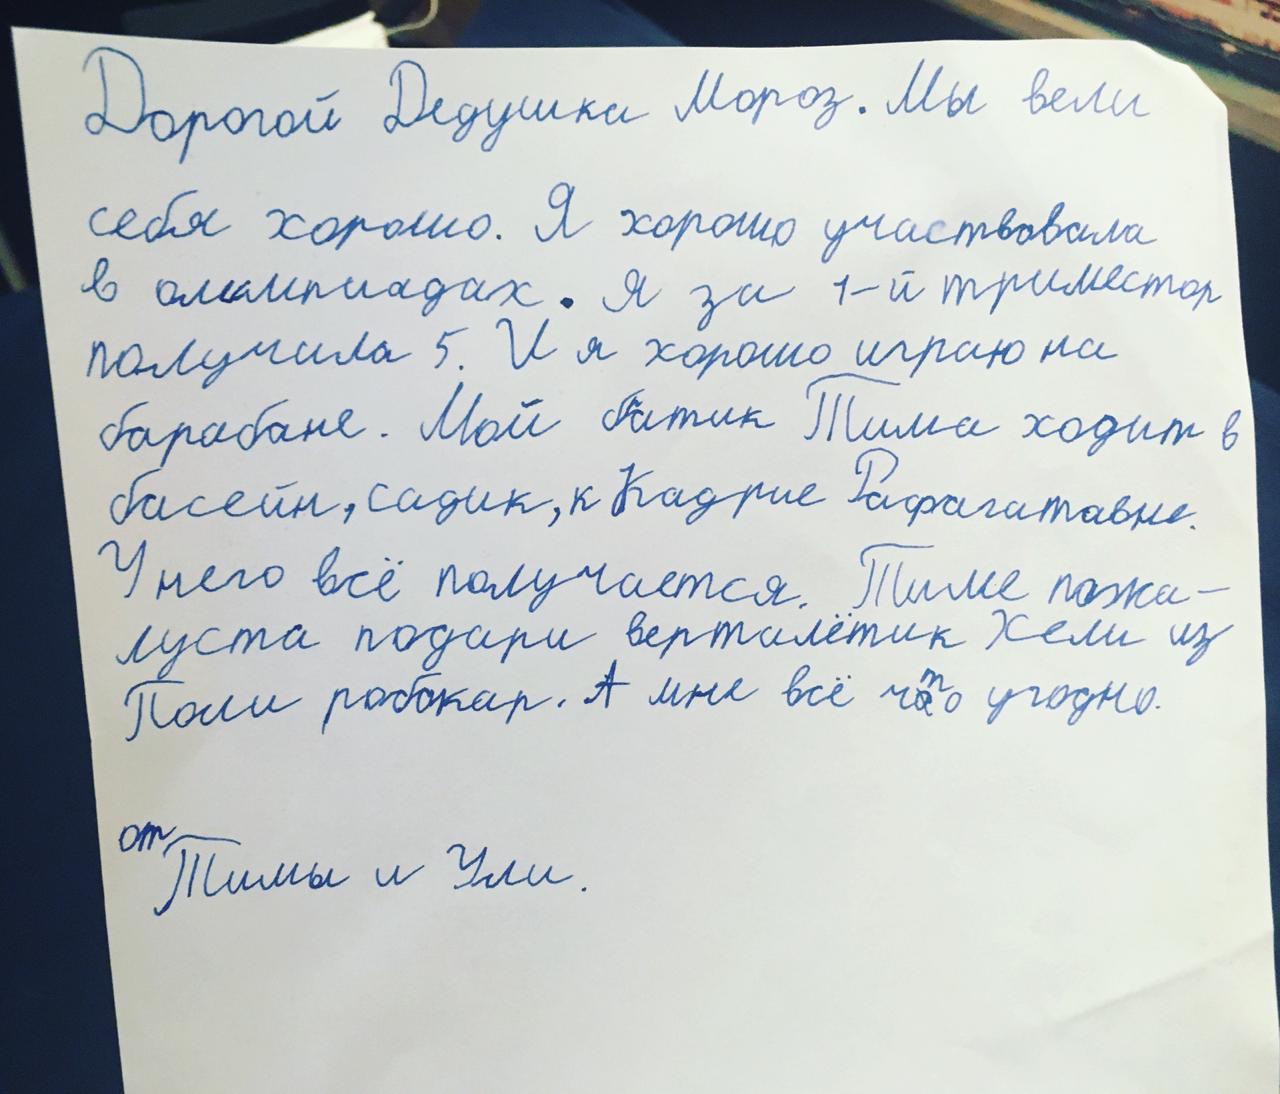 Дорогой Дедушка Мороз. Мы вели
себя хорошо. Я хорошо участвовала
в олимпиадах. Я за 1-й триместор
получила 5. И я хорошо играю на
барабане. Мой батик Тима ходит в
басейн, садик, к Кадрие Рафагатавне.
У него всё получается. Тиме пожа-
луста подари верталётик Хели из
Поли робокар. А мне всё что угодно.
от
Тимы и Ули.